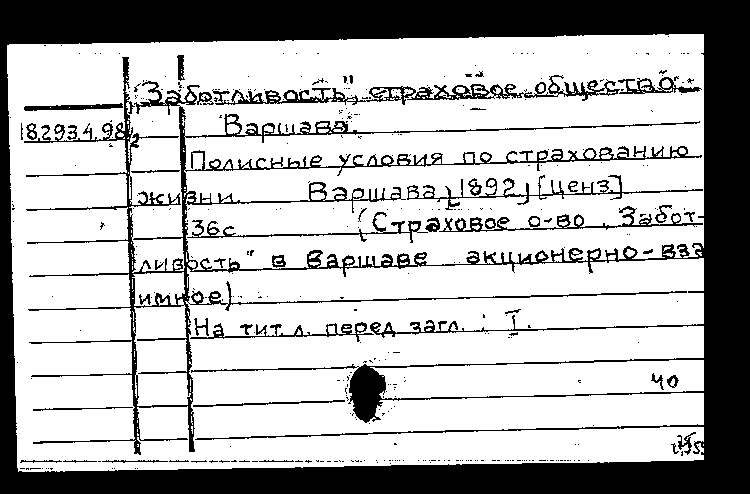 "Заботливость", страховое общество.
18.293.4.98/2 Варшава.
Полисные условия по страхованию
жизни. Варшава, [1892] [ценз]
36с (Страховое о-во „Забот-
ливость" в Варшаве акционерно-вза
имное).
На тит. л. перед загл.: I.
40